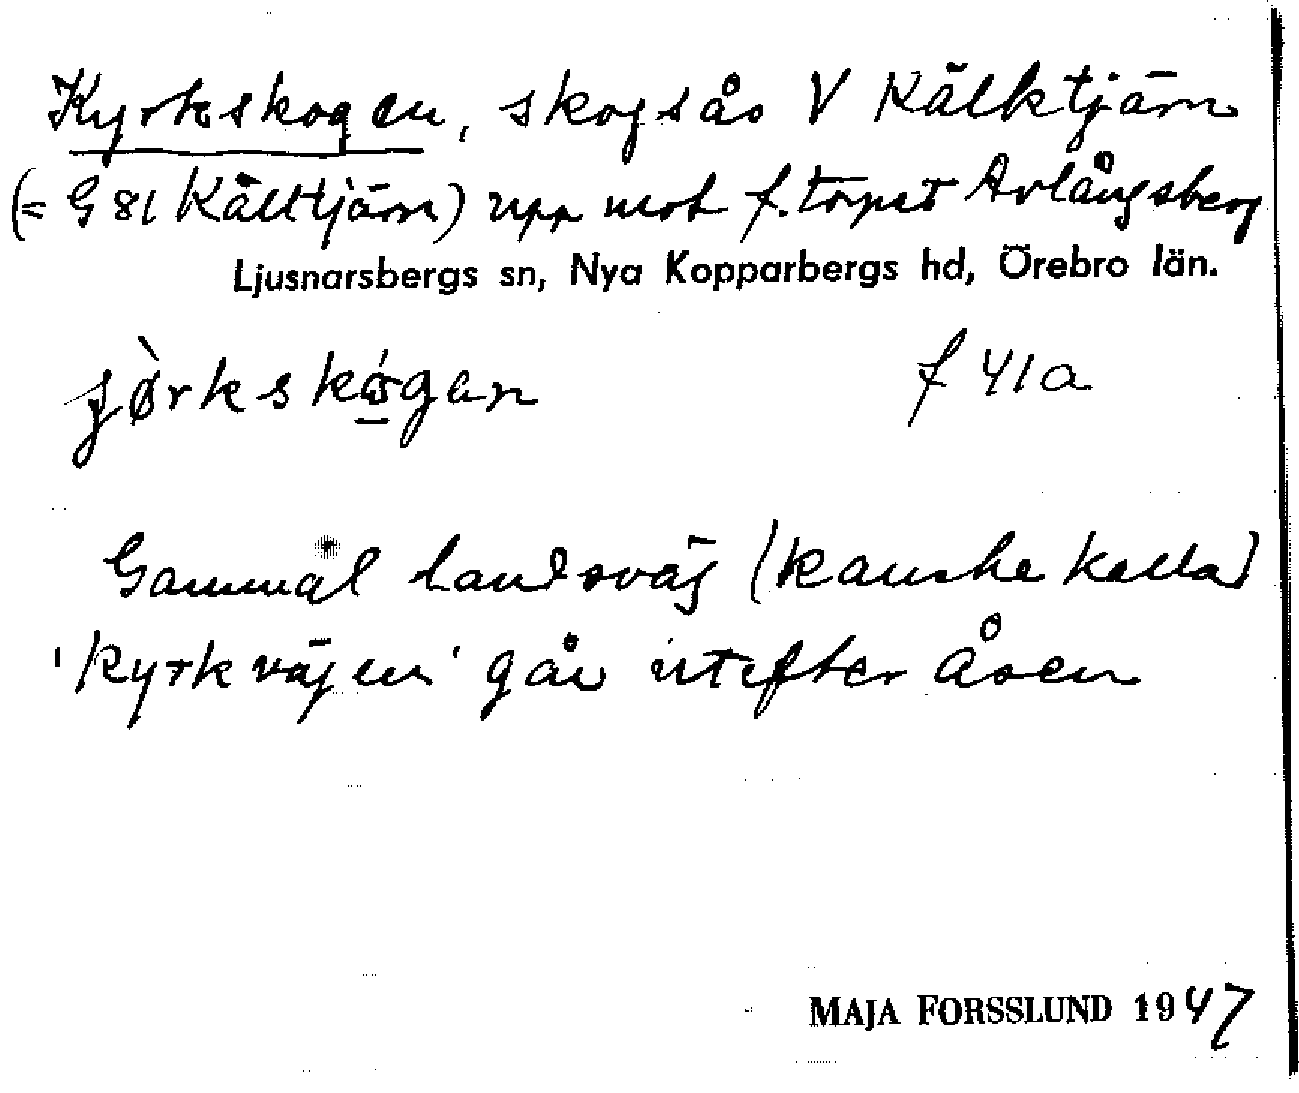 Kyrkskogen, skogsås V Kälktjärn
(= G 81 Källtjärn) upp mot f. torpet Avlångsberg
Ljusnarsbergs sn, Nya Kopparbergs hd, Örebro län.
jø̀rkskógen f 41a
Gammal landsväg (kanske kallad
'kyrkvägen' går utefter åsen
MAJA FORSSLUND 1947